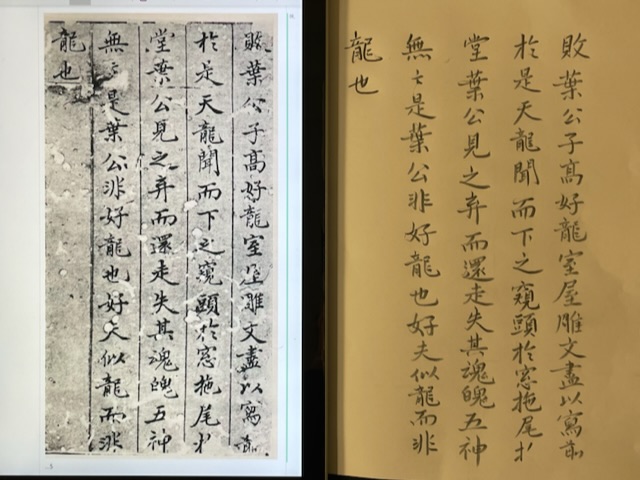 敗葉公子高好龍室屋雕文盡以寫龍
於是天龍聞而下之窺頭於窓拖尾於
堂葉公見之弃而還走失其魂魄五神
無〻是葉公非好龍也好夫似龍而非
龍也
敗葉公子高好龍室屋雕文盡以寫
於是天龍聞而下之窺頭於窓拖尾
堂葉公見之弃而還走失其魂魄五神
無〻是葉公非好龍也好夫似龍而非
龍也